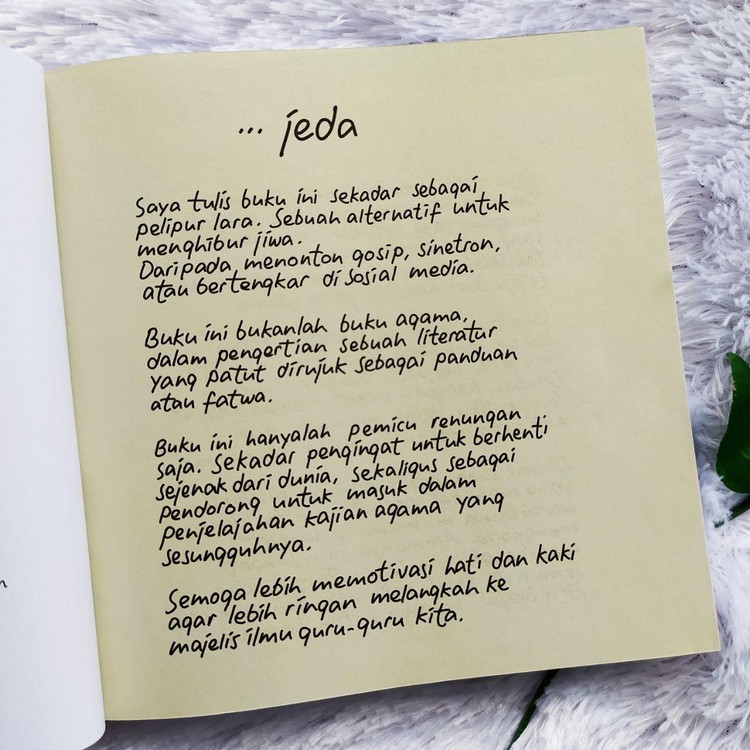 ... jeda
Saya tulis buku ini sekadar sebagai
pelipur lara. Sebuah alternatif untuk
menghibur jiwa.
Daripada menonton gosip, sinetron,
atau bertengkar di sosial media.
Buku ini bukanlah buku agama,
dalam pengertian sebuah literatur
yang patut dirujuk sebagai panduan
atau fatwa.
Buku ini hanyalah pemicu renungan
saja. Sekadar pengingat untuk berhenti
sejenak dari dunia, sekaligus sebagai
pendorong untuk masuk dalam
penjelajahan kajian agama yang
sesungguhnya.
Semoga lebih memotivasi hati dan kaki
agar lebih ringan melangkah ke
majelis ilmu guru-guru kita.